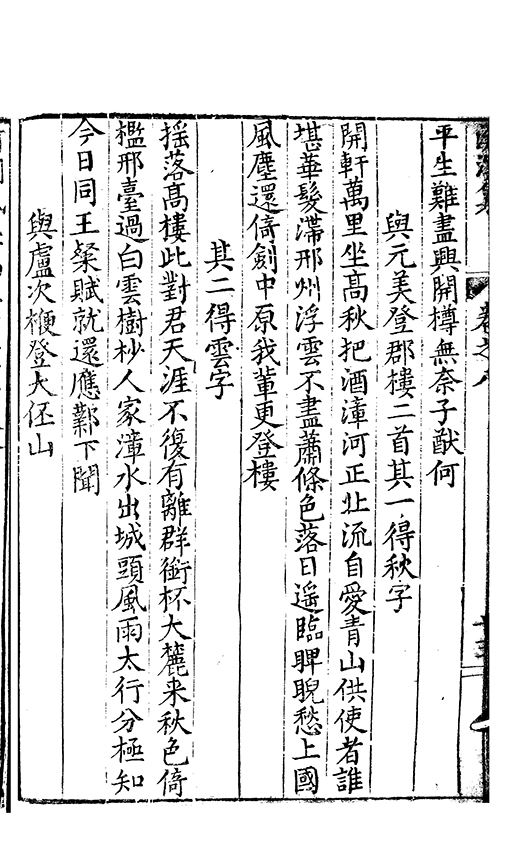 平生難盡興開樽無奈子猷何
與元美登郡樓二首其一得秋字
開軒萬里坐高秋把酒漳河正北流自愛青山供使者誰
堪華髮滯邢州浮雲不盡蕭條色落日遥臨睥睨愁上國
風塵還倚劍中原我輩更登樓
其二得雲字
揺落髙樓此對君天涯不復有離群銜杯大麓来秋色倚
檻邢臺過白雲樹杪人家漳水出城頭風雨太行分極知
今日同王粲賦就還應鄴下聞
與盧次楩登大伾山